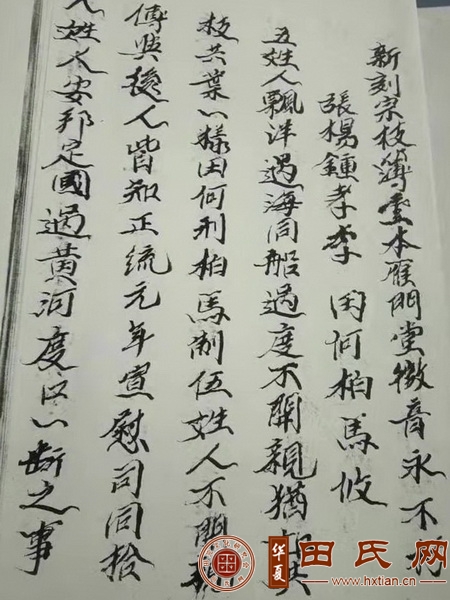 新刻宗枝簿壹本雁門堂徽音永不
張楊鍾李李田何柏馬攸
五姓人飄洋過海同船過度不開親猶如共
枝共葉一樣田何刑柏馬制伍姓人不開親
傳與後人皆知正統元年宣慰司同拾
人姓人安邦定國過黃河度口一断之事
华夏
田氏网
www.hxtian.cn